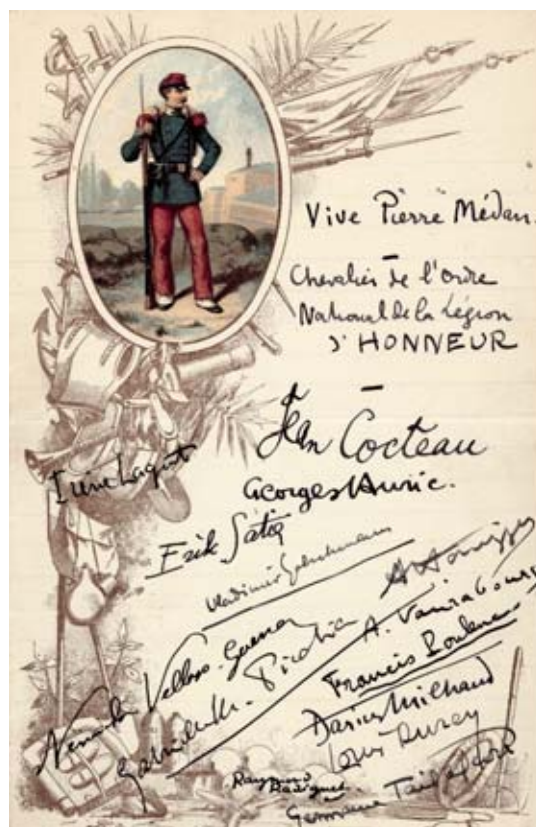 Vive Pierre Médan.
Chevalier de l'ordre
National de la Légion
d'HONNEUR
Jean Cocteau
Georges Auric.
Irène Lagut
Erik Satie
Vladimir Golschmann
A. Honegger
Nininha Velloso-Guerra
A. Vaurabourg
Gabrielle Picabia
Francis Poulenc
Darius Milhaud
Louis Durey
Raymond
Radiguet
Germaine Tailleferre